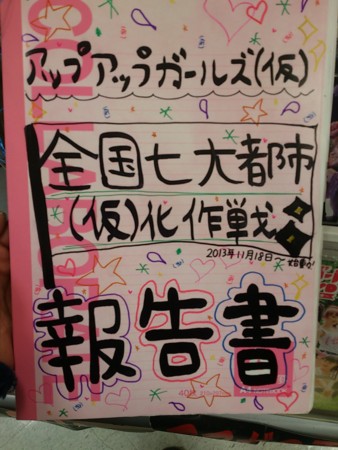 アップアップガールズ(仮)
全国七大都市
(仮)化作戦
2013年11月18日〜
報告書